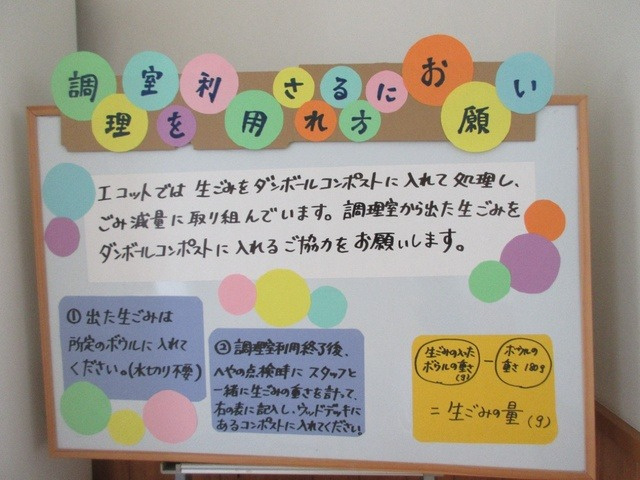 調理室を利用される方にお願い
エコットでは 生ごみをダンボールコンポストに入れて処理し、
ごみ減量に取り組んでいます。調理室から出た生ごみを
ダンボールコンポストに入れるご協力をお願いします。
① 出た生ごみは
所定のボウルに入れて
ください。(水切り不要)
② 調理室利用終了後、
へやの点検時に スタッフと
一緒に生ごみの重さを計って、
右の表に記入し、ウッドデッキに
あるコンポストに入れてください
生ごみの入った
ボウルの重さ
(g)
－
ボウルの
重さ 180g
＝ 生ごみの量 (g)